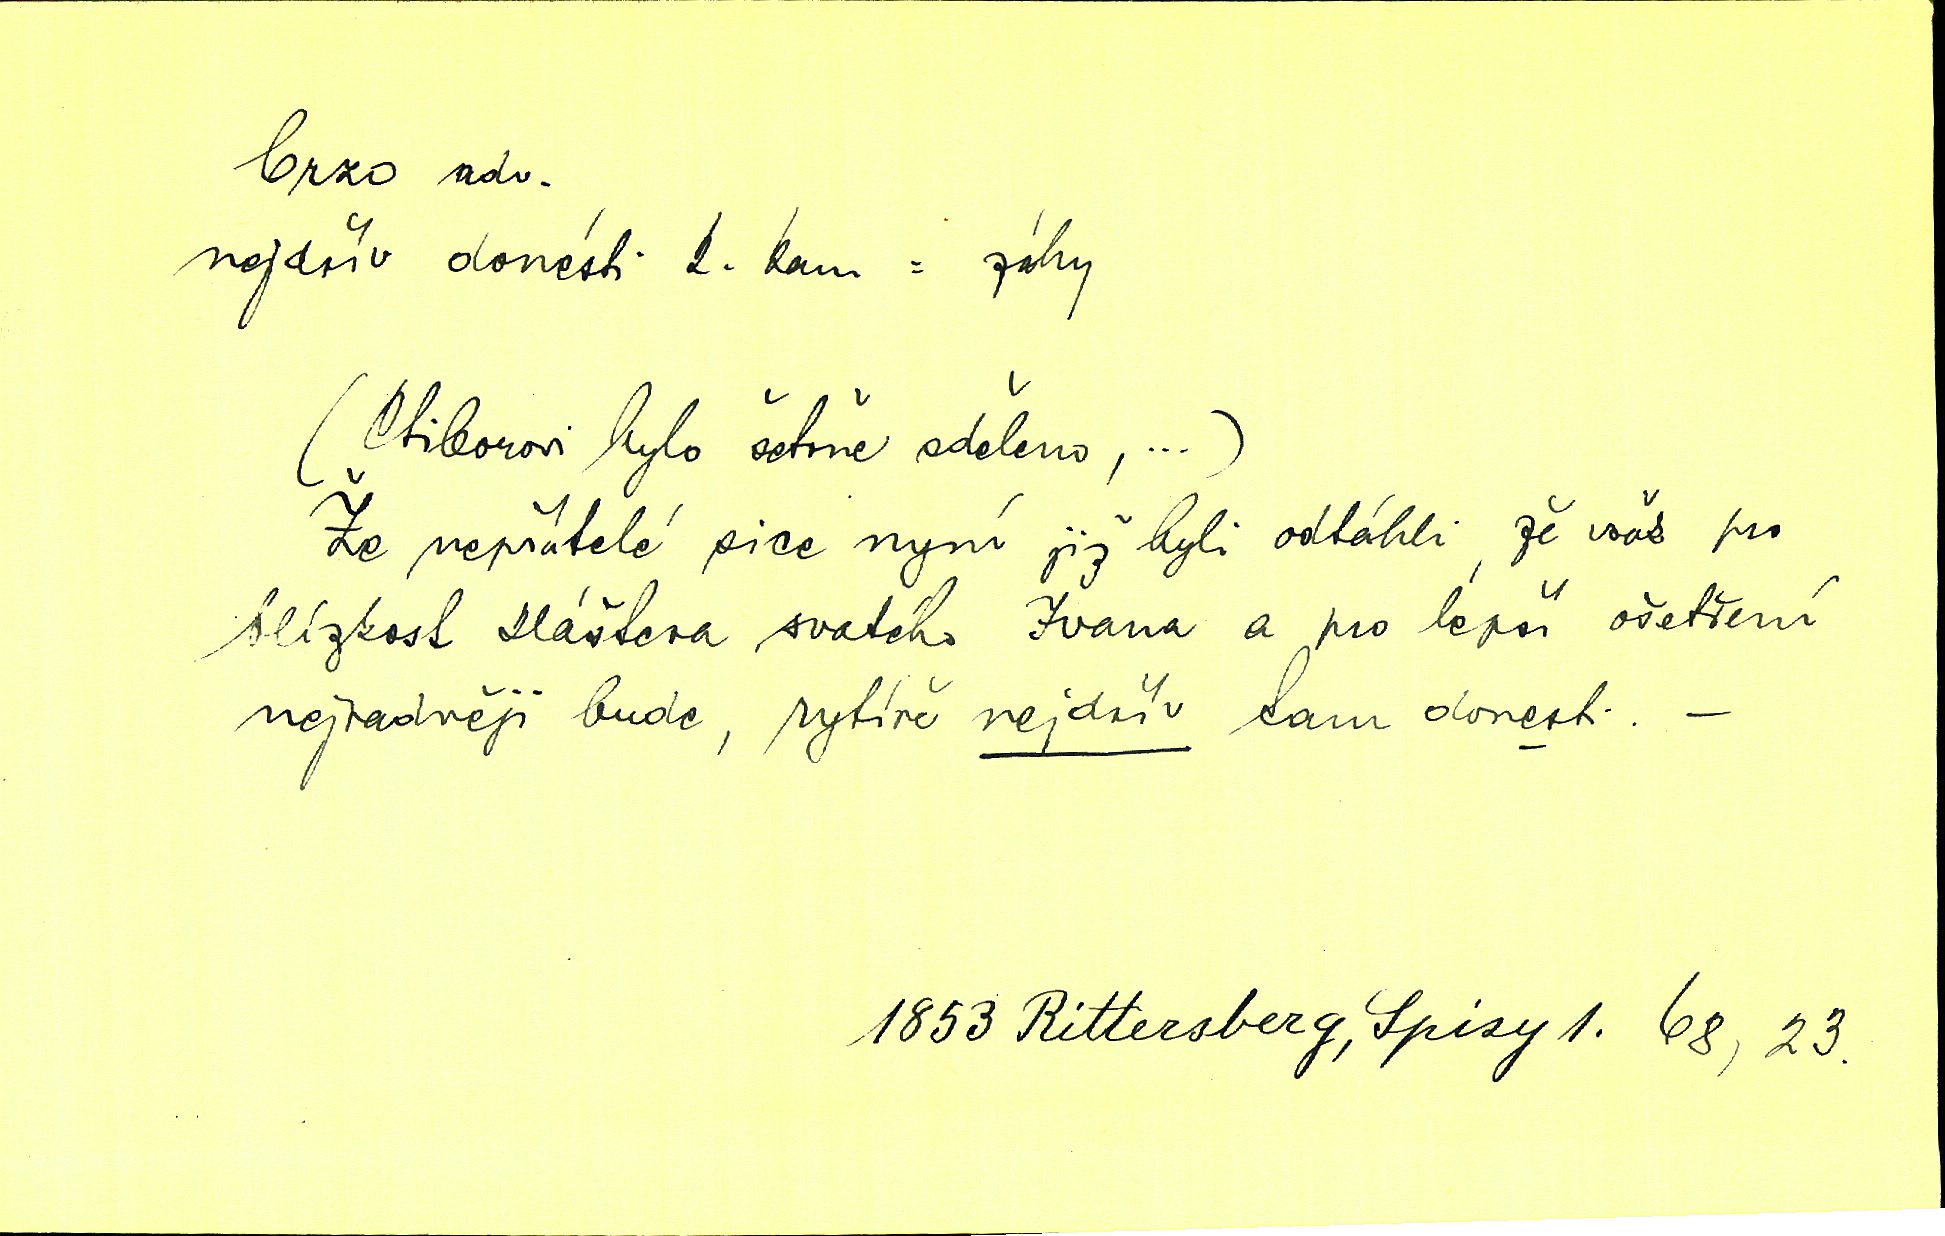 brzo adv.
nejdřív donésti k. kam = záhy
(Ctiborovi bylo šetrně sděleno, ...)
Že nepřátelé sice nyní již byli odtáhli, že však pro
blízkost kláštera svatého Ivana a pro lepší ošetření
nejradněji bude, rytíře nejdřív tam donesti. —
1853 Rittersberg, Spisy 1. 68, 23.